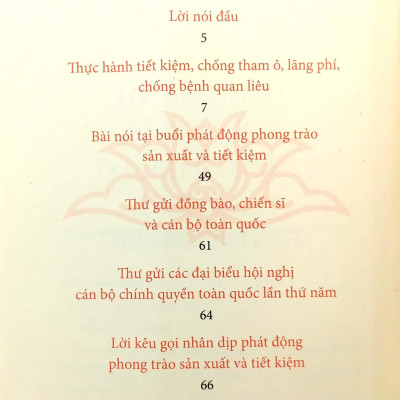 Lời nói đầu
5
Thực hành tiết kiệm, chống tham ô, lãng phí,
chống bệnh quan liêu
7
Bài nói tại buổi phát động phong trào
sản xuất và tiết kiệm
49
Thư gửi đồng bào, chiến sĩ
và cán bộ toàn quốc
61
Thư gửi các đại biểu hội nghị
cán bộ chính quyền toàn quốc lần thứ năm
64
Lời kêu gọi nhân dịp phát động
phong trào sản xuất và tiết kiệm
66